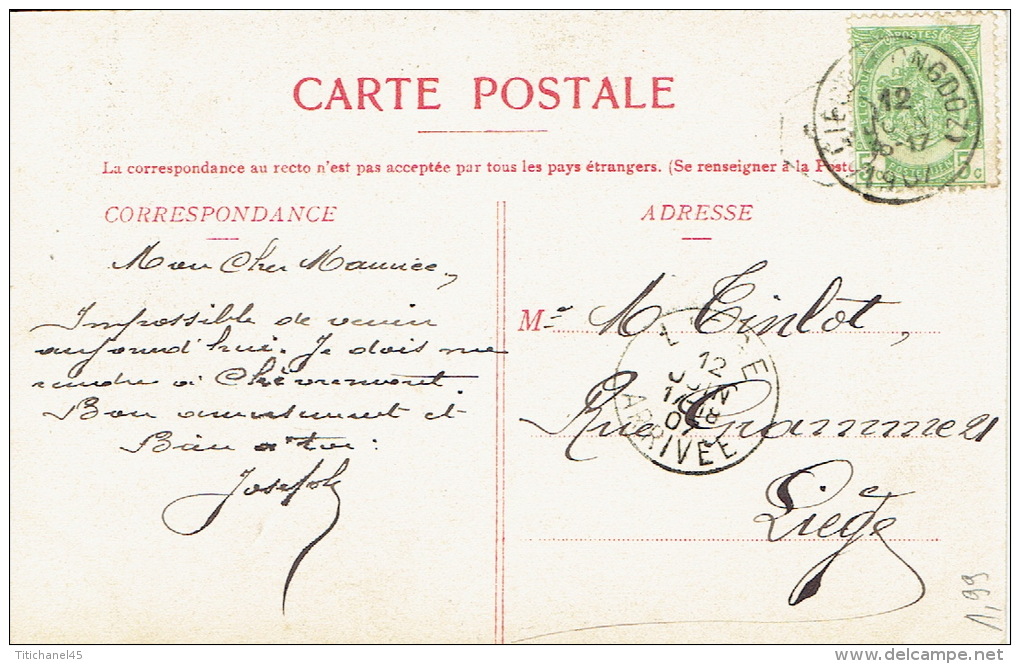 CARTE POSTALE
La correspondance au recto n'est pas acceptée par tous les pays étrangers. (Se renseigner à la Poste
CORRESPONDANCE
Mon Cher Maurice,
Impossible de venir
aujourd'hui. Je dois me
rendre à Chèvremont.
Bon amusement et
Bien à toi:
Joseph
ADRESSE
M M Tinlot,
Rue Grammme 21
Liège
POSTES
5 C
12
JUIN
16-17
1907
12
JUIN
17-18
07
ARRIVÉE
1,99
Titichanel45
delcampe.net